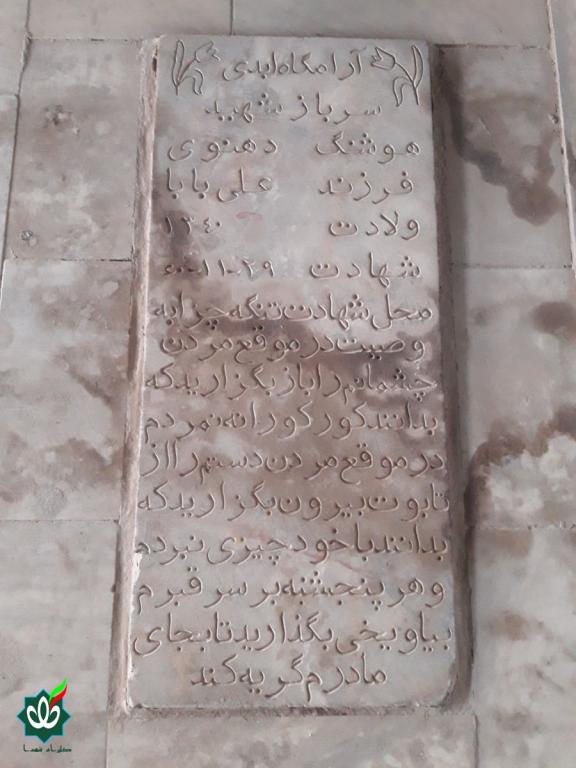 آرامگاه ابدی
سرباز شهید
هوشنگ دهنوی
فرزند علی بابا
ولادت ۱۳۴۰
شهادت ۲۹-۱۱-۶۰
محل شهادت تنگه چزابه
وصیت در موقع مردن
چشمانم را باز بگزارید که
بدانند کور کورانه نمردم
در موقع مردن دستم را از
تابوت بیرون بگزارید که
بدانند با خود چیزی نبردم
و هر پنجشنبه بر سر قبرم
بیاویخی بگذارید تا بجای
مادرم گریه کند